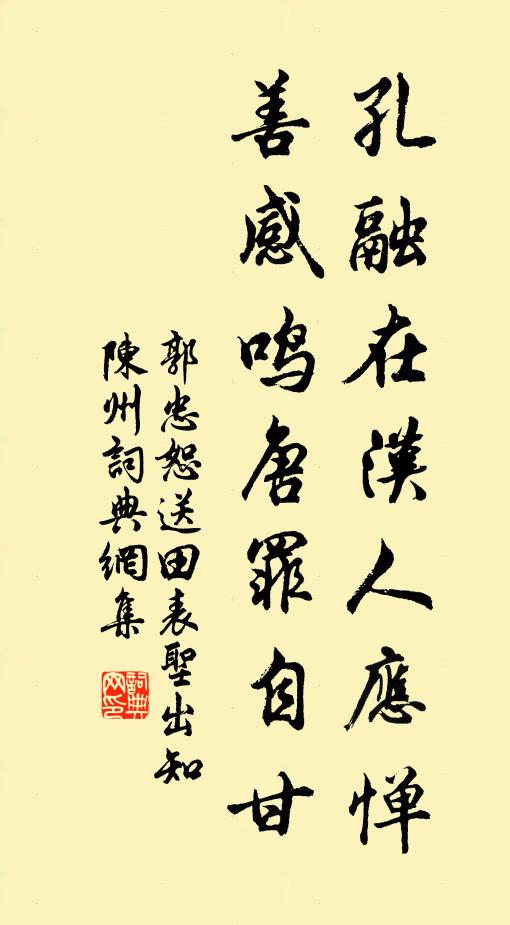 孔融在漢人應憚
善感鳴唐罪自甘
郭忠恕送田表聖出知
陳州詞典網集
詞典網印